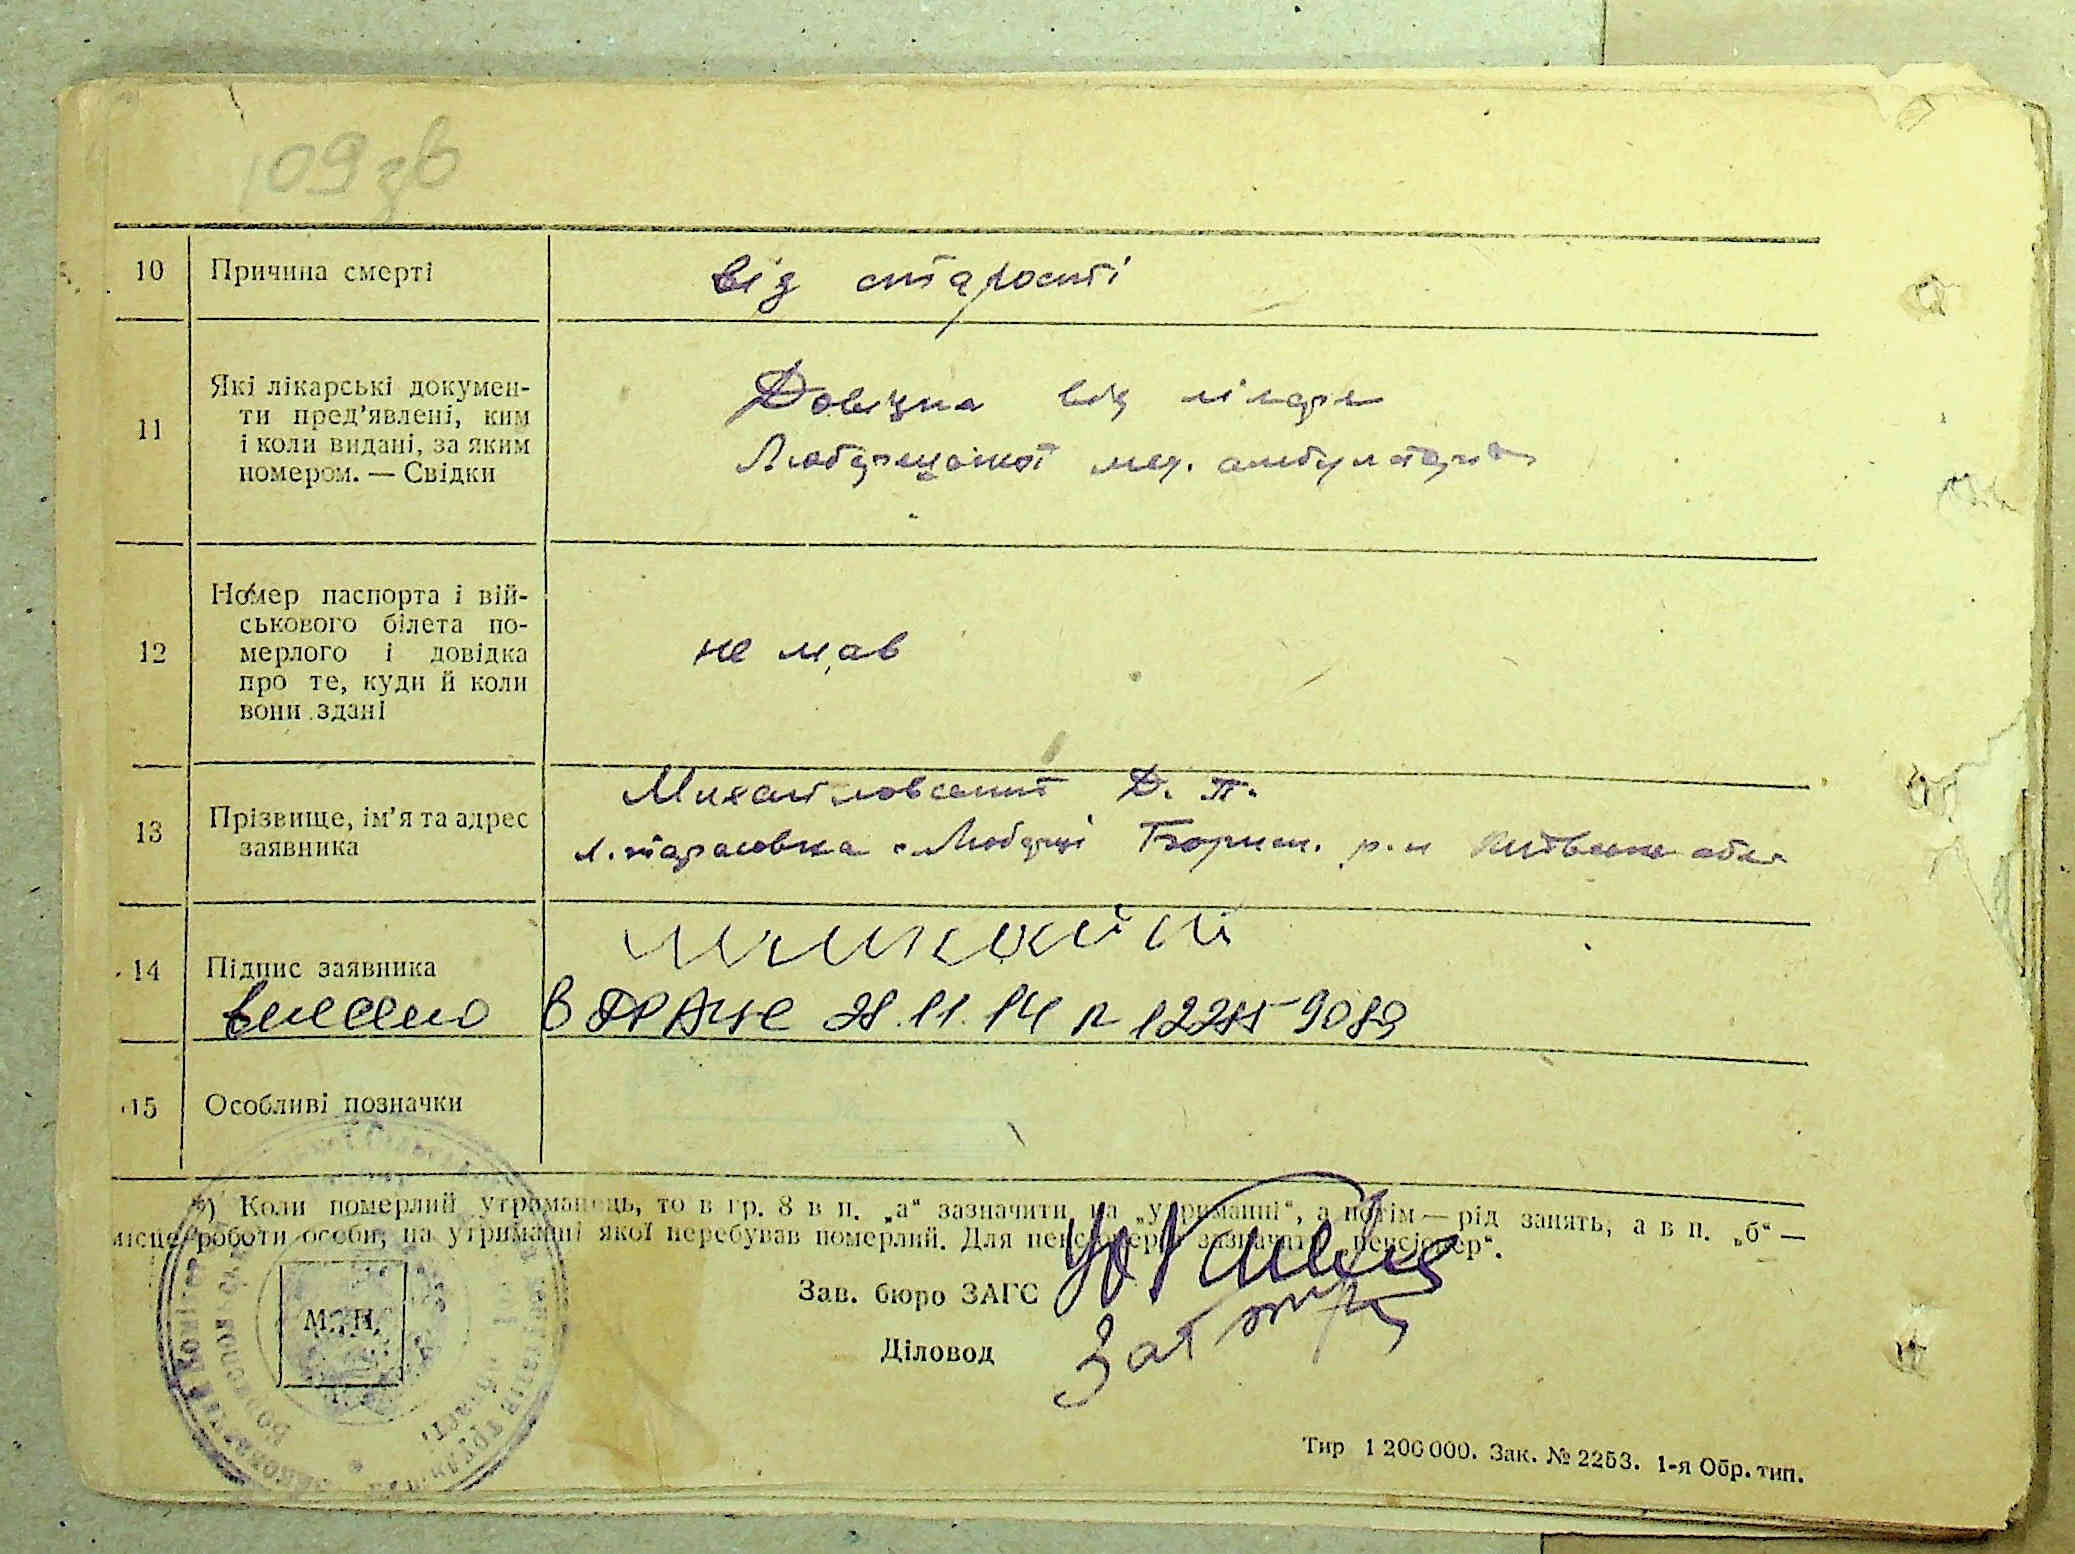 109 зв
10 Причина смерті від старості
11 Які лікарські докумен-
ти пред'явлені, ким
і коли видані, за яким
номером. — Свідки
Довідка від лікаря
Любарецької мед. амбулаторії
12 Номер паспорта і вій-
ськового білета по-
мерлого і довідка
про те, куди й коли
вони здані
не мав
13 Прізвище, ім'я та адрес
заявника
Михайловський Д. П.
Любарці Борисп. р-н Київська обл.
14 Підпис заявника
внесено в ДРАЦС 28.11.14 n 12285-9089
15 Особливі позначки
*) Коли померлий утриманець, то в гр. 8 в п. „а“ зазначити на „утриманні“, а потім — рід занять, а в п. „б“ —
місце роботи особи, на утриманні якої перебував померлий. Для пенсіонера зазначати „пенсіонер“.
Зав. бюро ЗАГС
Діловод
М. П.
Тир 1 200 000. Зак. № 2253. 1-я Обр. тип.